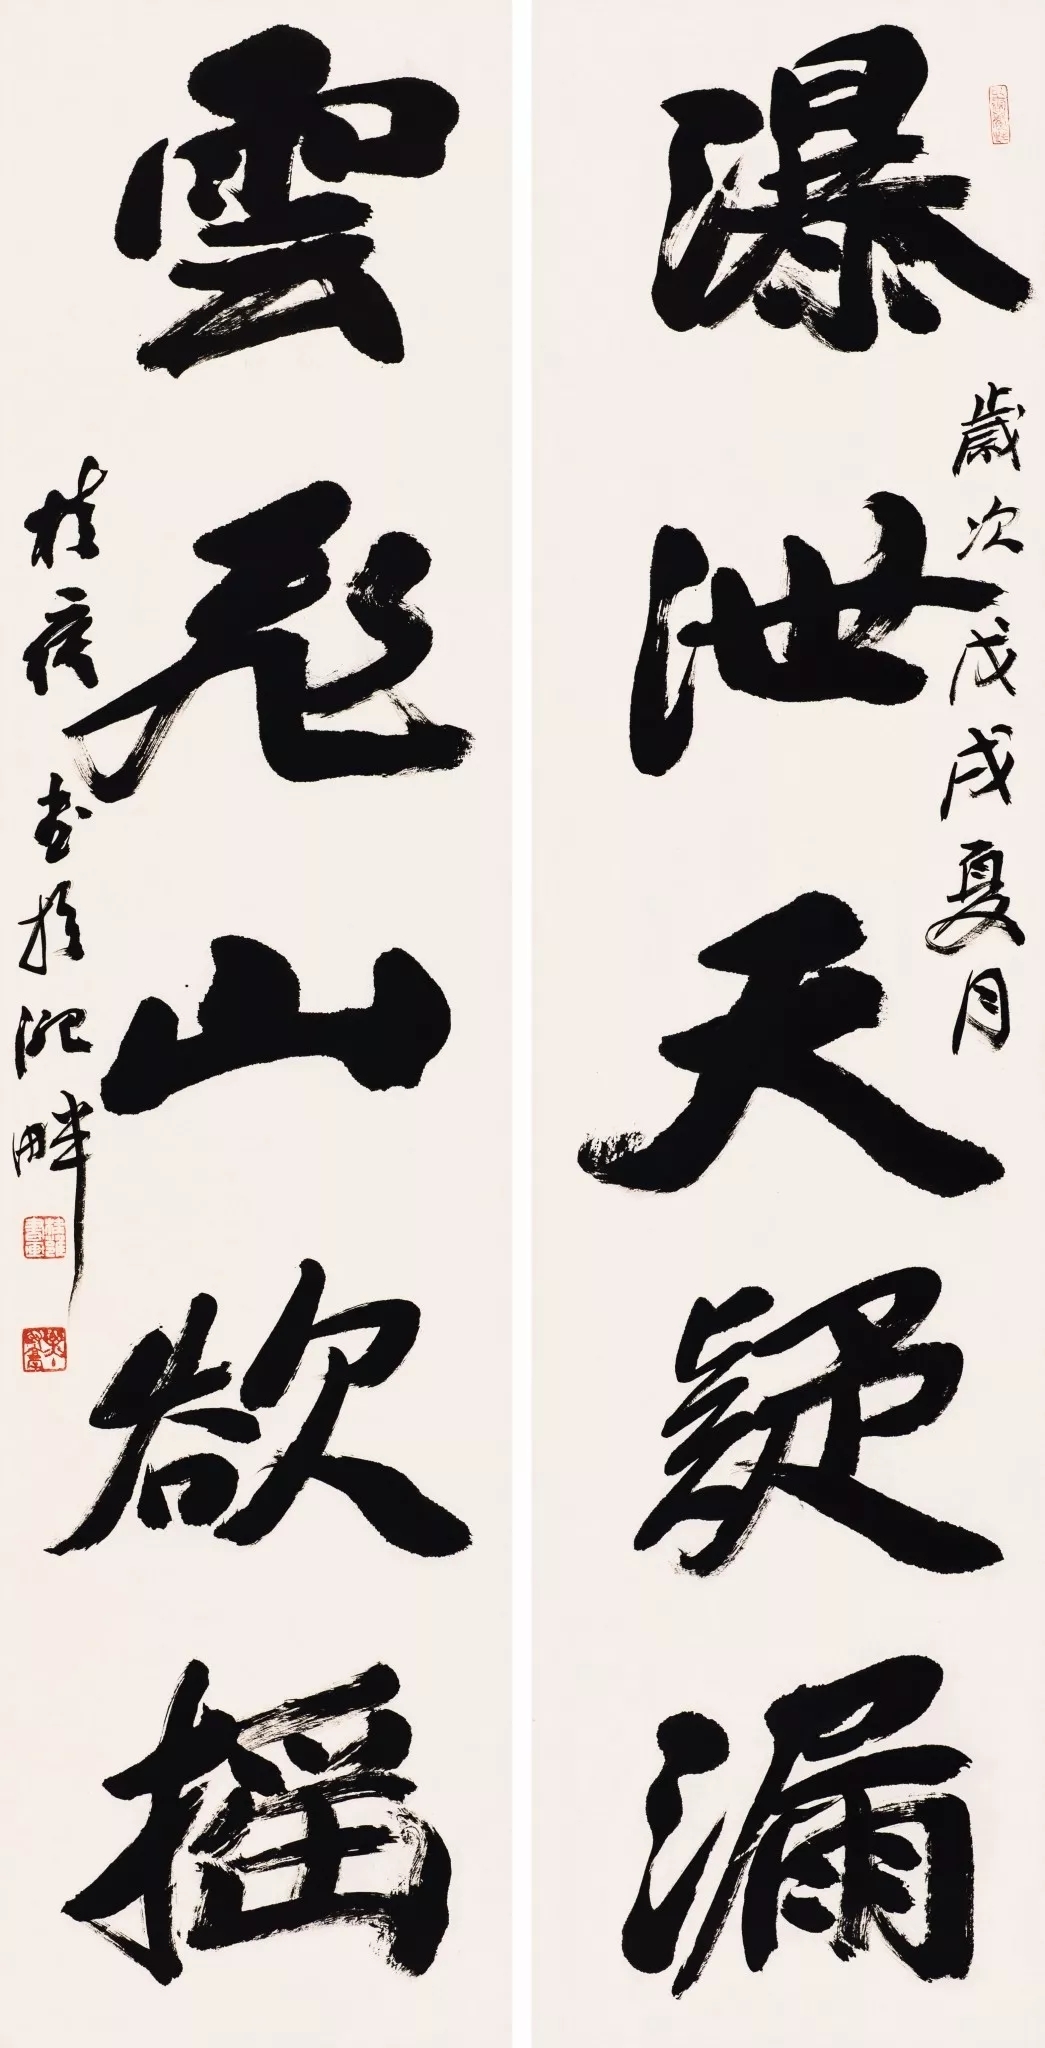 瀑泄天疑漏
歲次戊戌夏月
雲飛山欲搖
桂雍書於淝畔